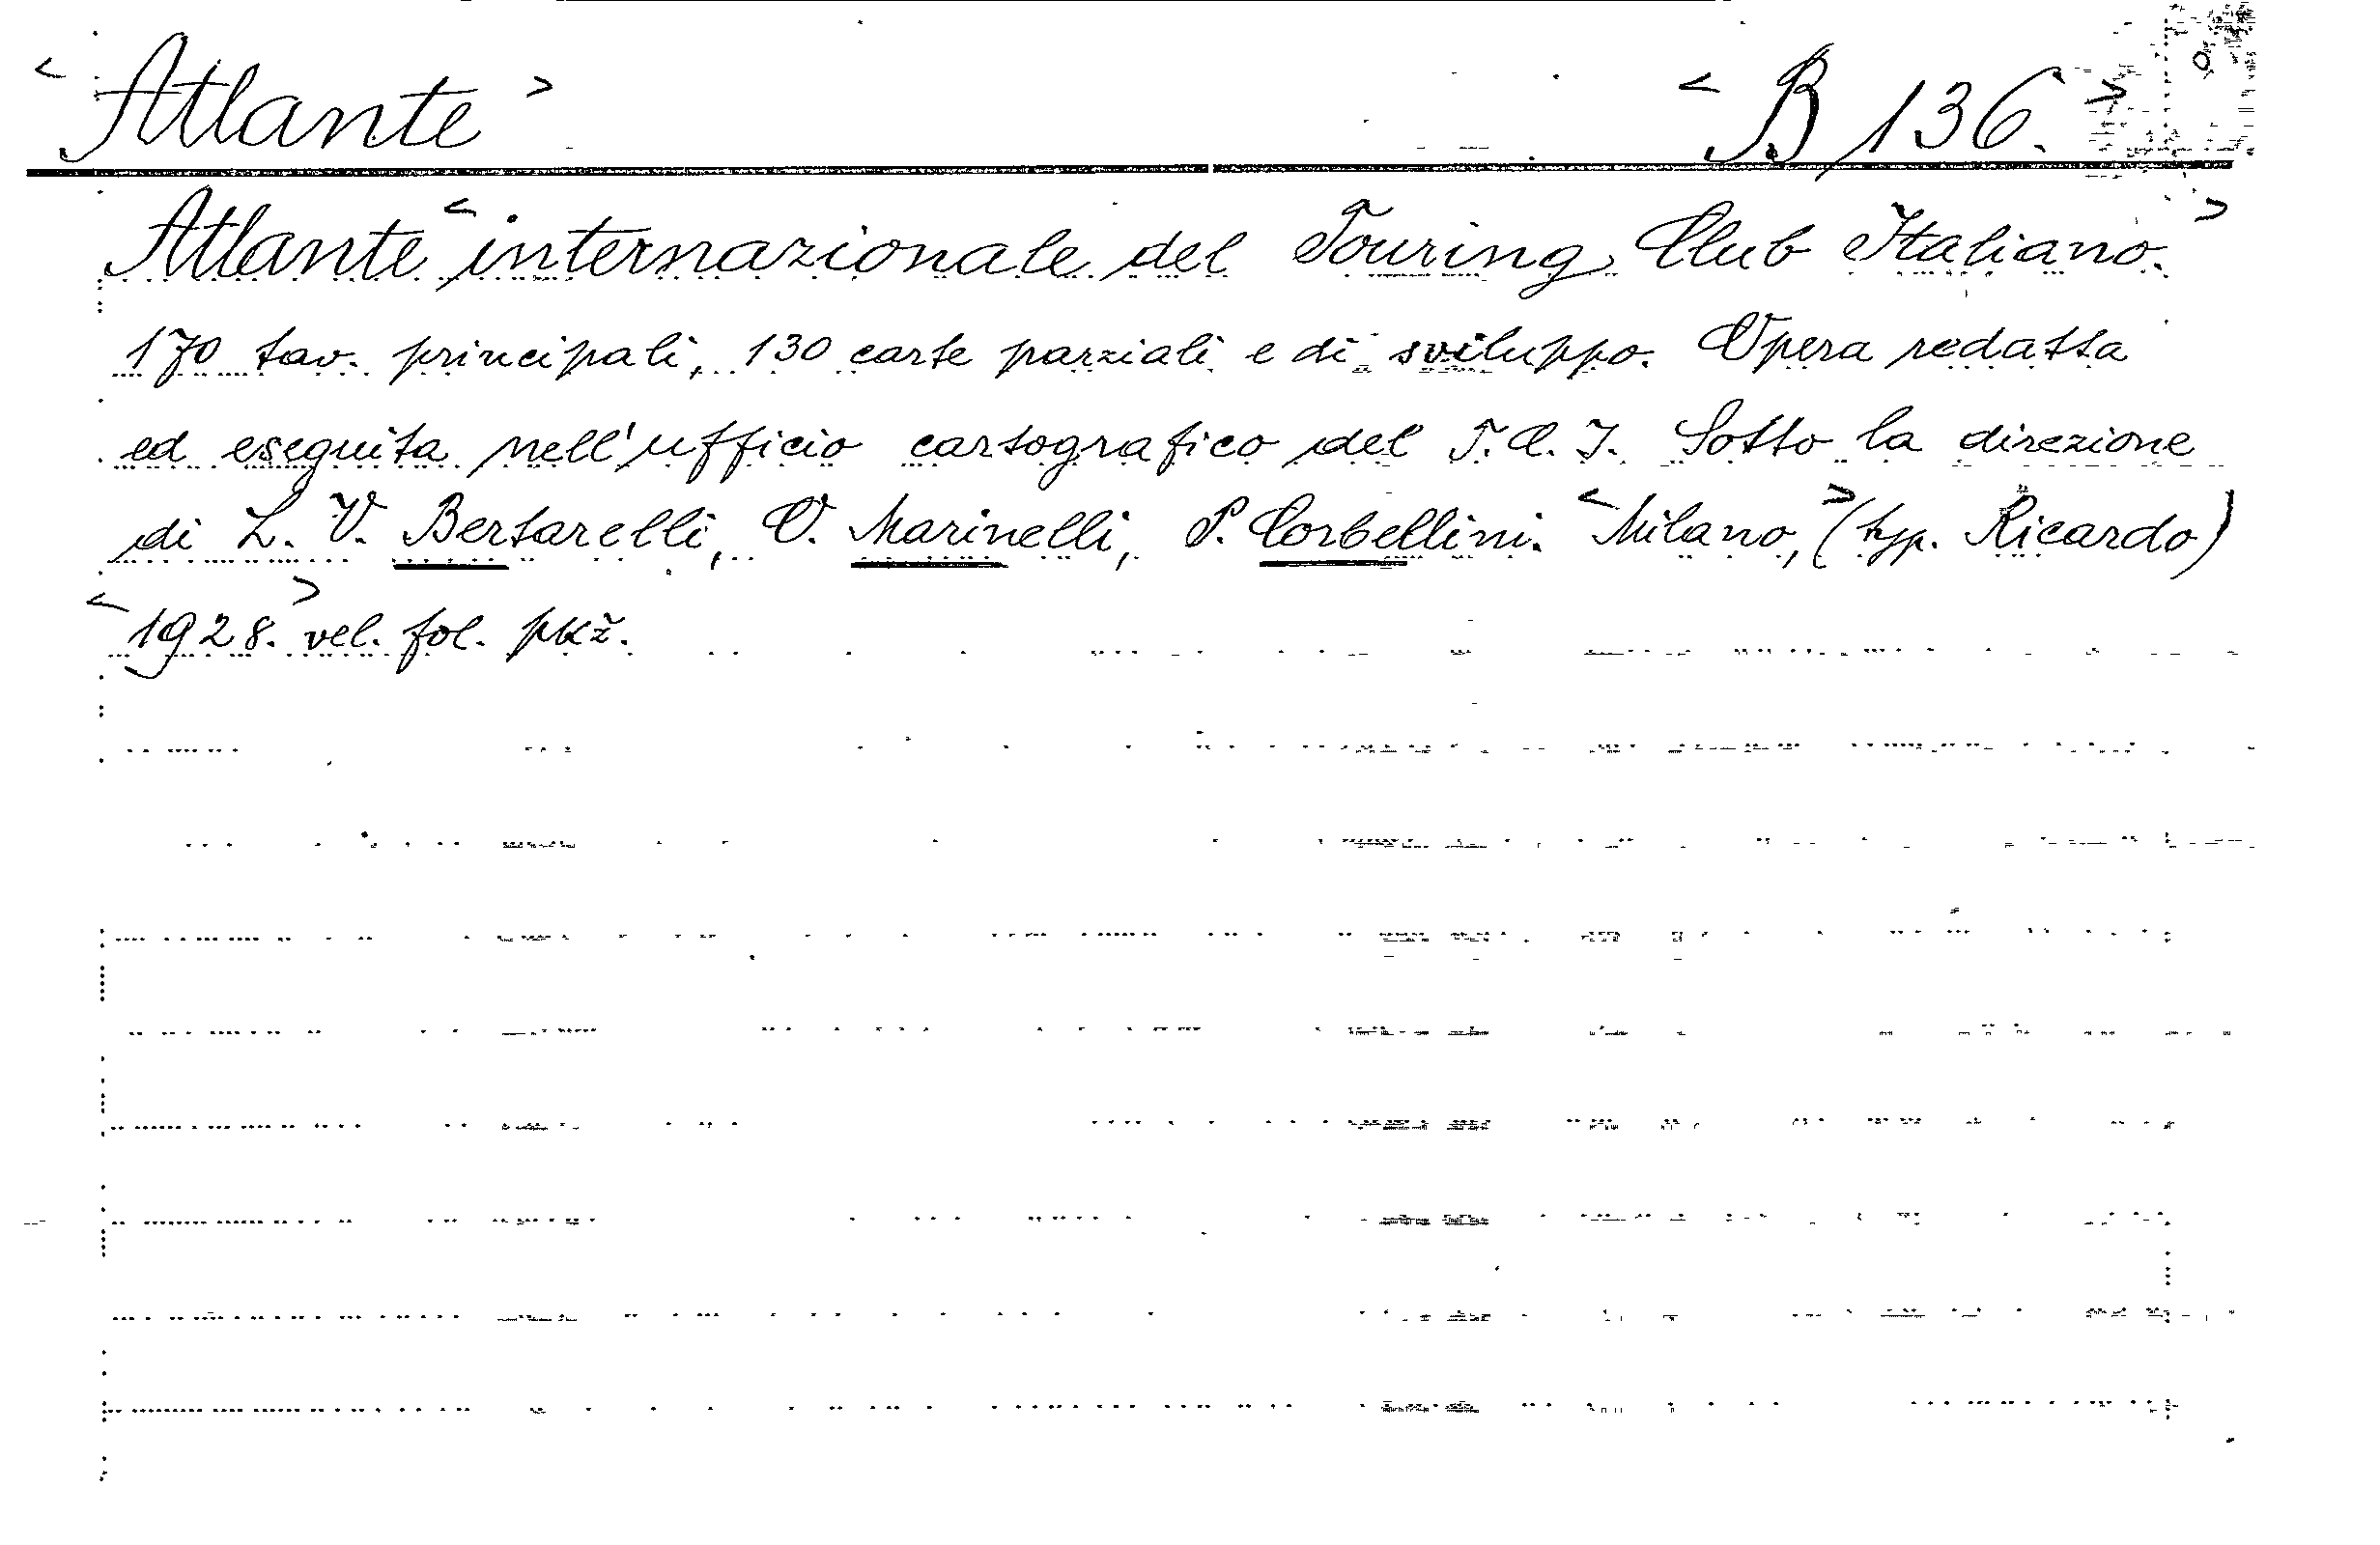 < Atlante > < B 136. >
Atlante < internazionale del Touring Club Italiano. >
170 tav. principali, 130 carte parziali e di sviluppo. Opera redatta
ed eseguita nell'ufficio cartografico del T.C.I. Sotto la direzione
di L. V. Bertarelli, O. Marinelli, P. Corbellini. < Milano, > (typ. Ricardo)
< 1928. > vel. fol. pkž.